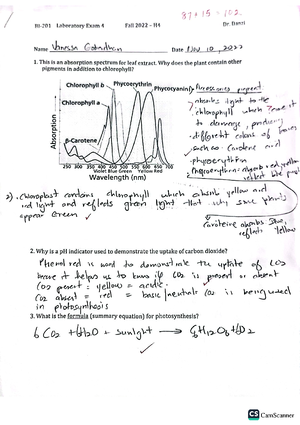 87 + 15 = 102
BI-201 Laboratory Exam 4 Fall 2022 - H4 Dr. Banzi
Name Vanessa Date Nov 10, 2022
1. This is an absorption spectrum for leaf extract. Why does the plant contain other
pigments in addition to chlorophyll?
Chlorophyll b
Phycoerythrin
Phycocyanin
Chlorophyll a
β-Carotene
Absorption
Violet Blue Green Yellow Red
250 300 350 400 450 500 550 600 650 700
Wavelength (nm)
Accessories pigment
absorbs light to the
chlorophyll which
to damage, producing
different colors of
such as Carotene and
phycoerythrin
Phycoerythrin absorbs red, yellow
reflect
2). chloroplast contains chlorophyll which absorb yellow and
red light and reflects green light that why some plants
appear Green ✓
Carotene absorbs blue,
reflects Yellow
2. Why is a pH indicator used to demonstrate the uptake of carbon dioxide?
Phenol red is used to demonstrate the uptake of CO2
hence it helps us to know if CO2 is present or absent
CO2 present = yellow = acidic.
CO2 absent = red = basic/neutral CO2 is being used
in photosynthesis
3. What is the formula (summary equation) for photosynthesis?
6CO2 + 6H2O + sunlight → C6H12O6 + 6O2
✓
CS CamScanner